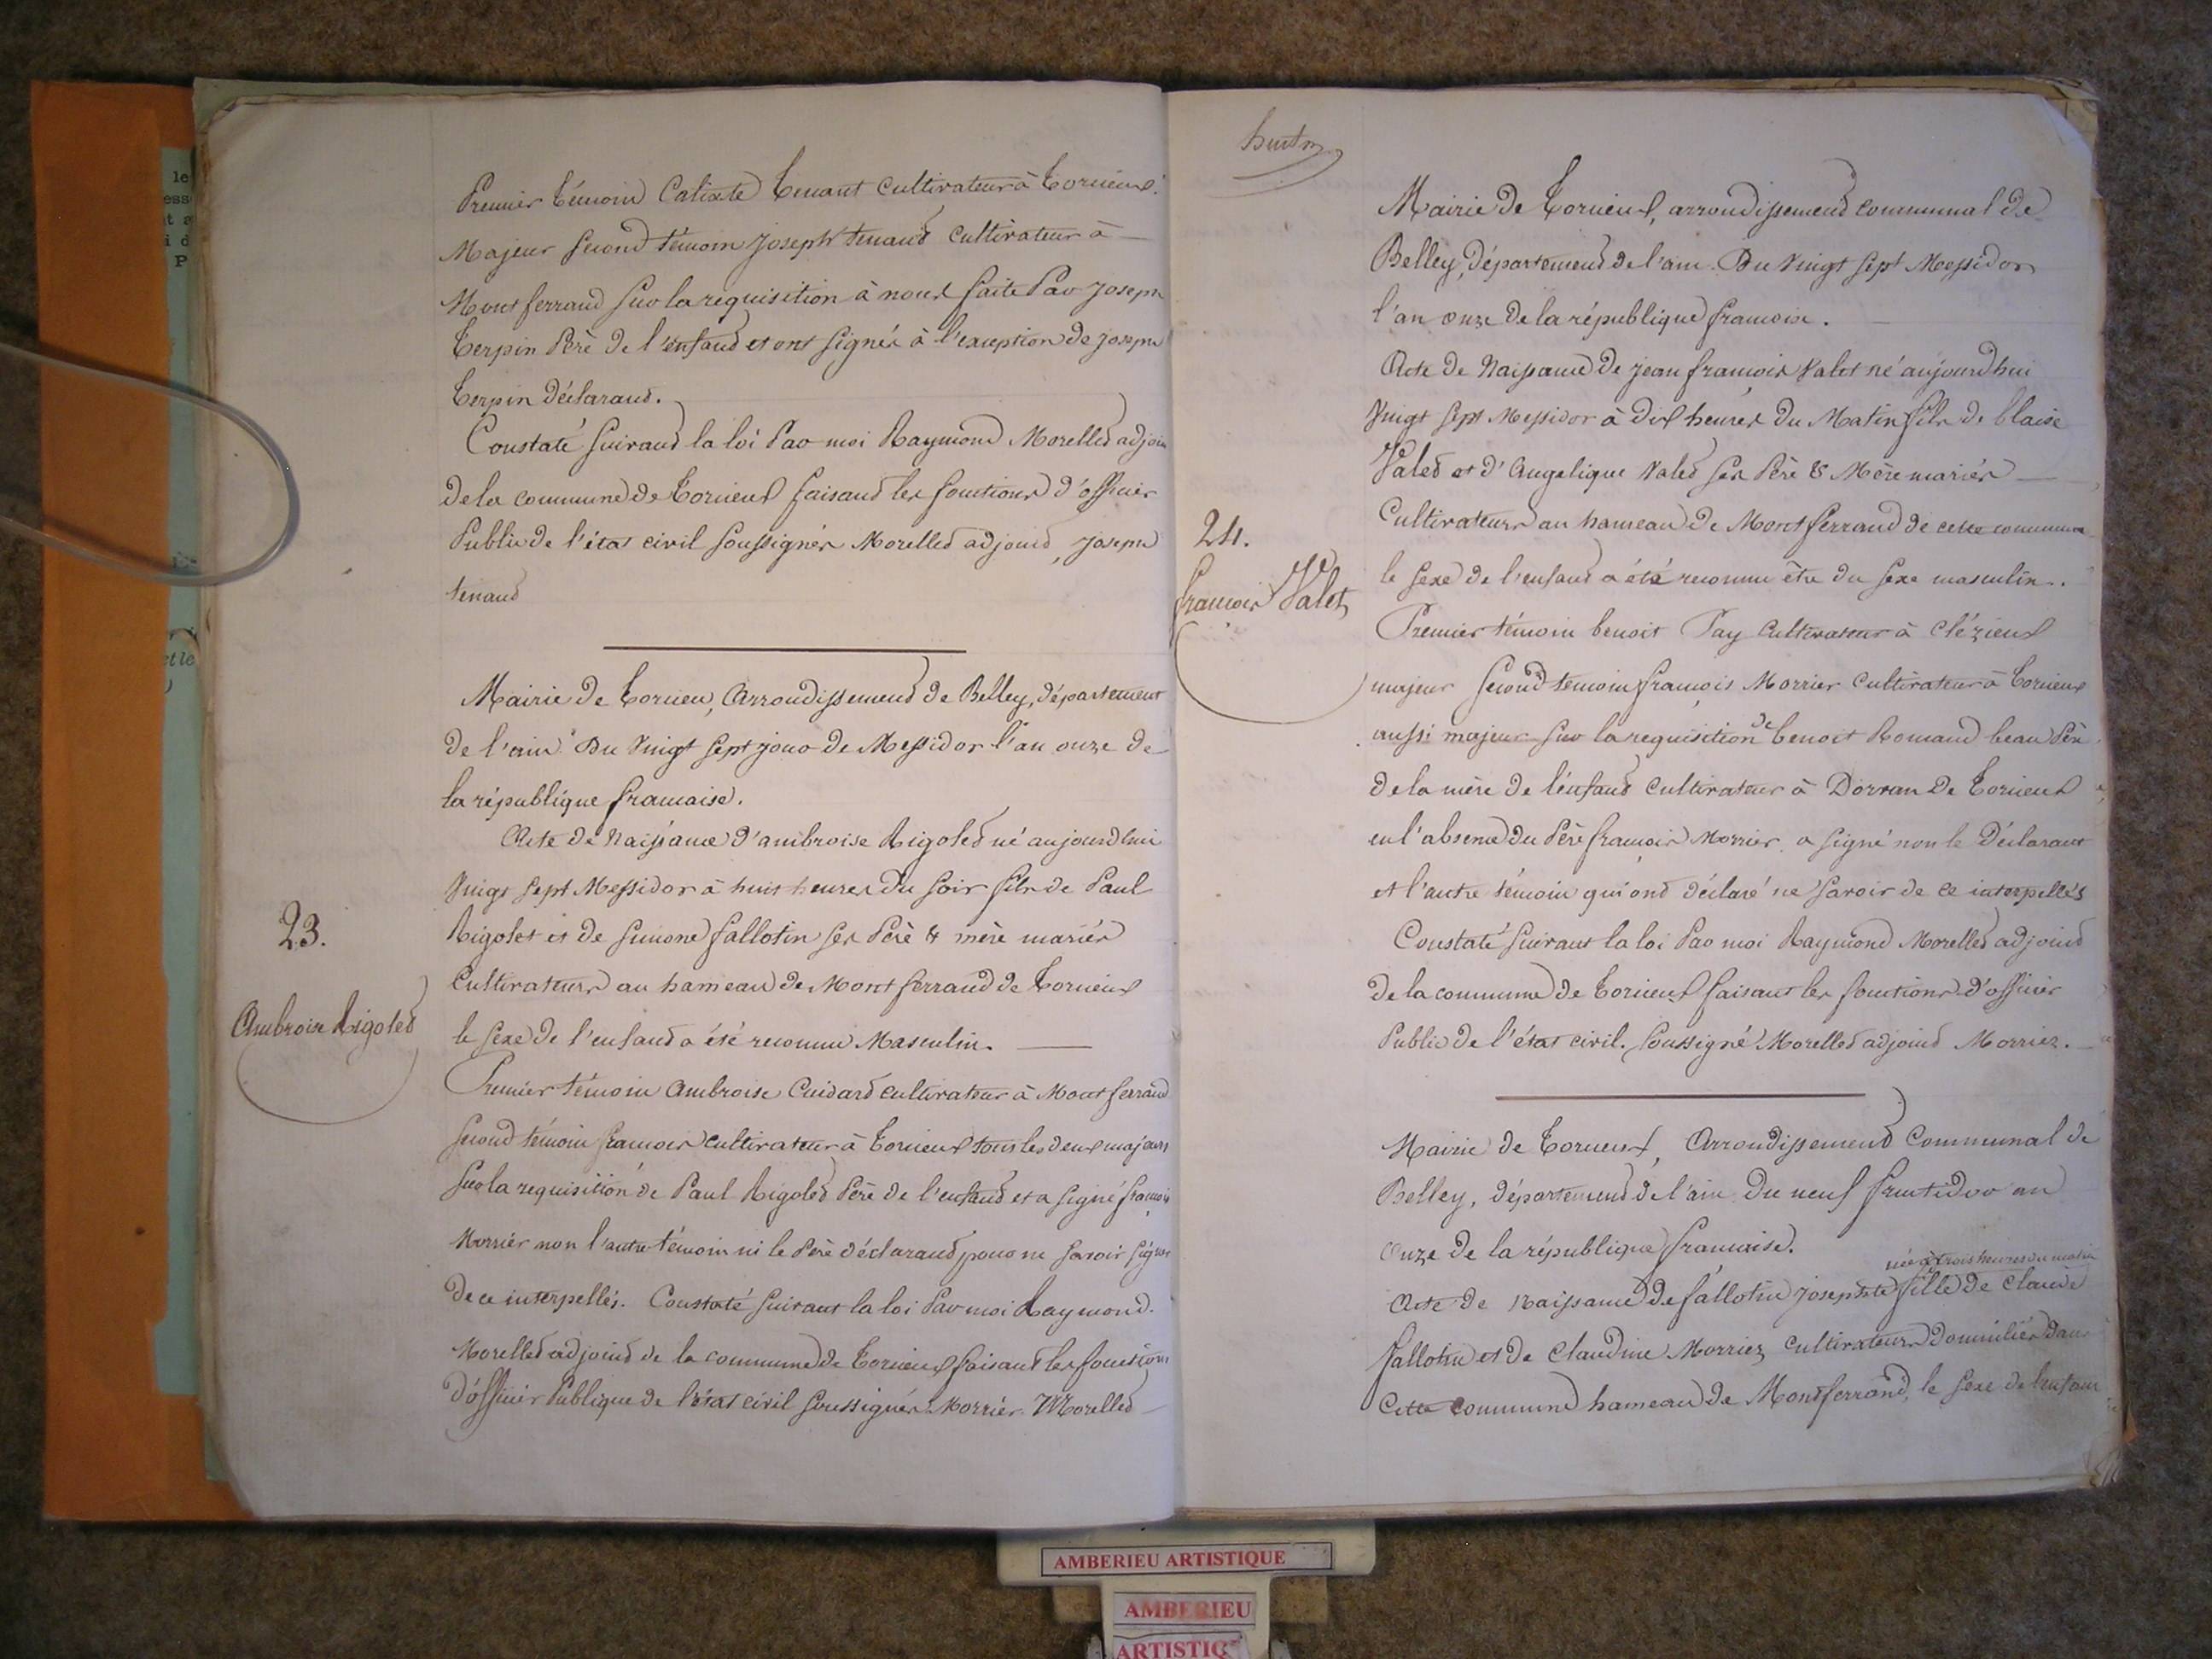 Premier témoin Calixte tenant cultivateur à torcieux
Majeur second témoin joseph tenand cultivateur à
Montferrand sur la requisition à nous faite Par joseph
terpin Père de l'enfand et ont signés à l'exception de joseph
terpin déclarand.
Constaté suivand la loi Par moi Raymond Morelled adjoin
de la commune de torcieux faisand les fonctions d'officier
Public de l'état civil soussignés Morelled adjoind, joseph
tenand
Mairie de torcieu, Arrondissemend de Belley, département
de l'ain Du Vingt sept jour de Messidor l'an onze de
la république francaise.
23.
Ambroise Rigoled
Acte de Naissance d'ambroise Rigoled né aujourdhui
Vingt sept Messidor à huit heures du soir fils de Paul
Rigolet et de simone fallotin ses Père & mère mariés
Cultivateurs au hameau de Montferrand de torcieux
le sexe de l'enfand a été reconnu Masculin.
Premier témoin Ambroise Cuidard cultivateur à Montferrand
second témoin francois cultivateur à torcieux tous les deux majeurs
sur la requisition de Paul Rigoled Père de l'enfand et a signé françois
Morrier non l'autre témoin ni le Père déclarand pour ne savoir signer
de ce interpellés. Constaté suivant la loi Par moi Raymond.
Morelled adjoind de la commune de torcieux faisant les fonctions
d'officier Publique de l'état civil soussignés Morrier. Morelled
huit
Mairie de torcieux, arrondissemend communal de
Belley, départemend de l'ain. Du Vingt sept Messidor
l'an onze de la république francoise.
24.
francois Valet
Acte de Naissance de jean françois Valet né aujourd'hui
Vingt sept Messidor à dix heures du Matin fils de blaise
Valed et d'Angelique Valed ses Père & Mère mariés
Cultivateurs au hameau de Montferrand de cette commune
le sexe de l'enfand a été reconnu être du sexe masculin.
Premier témoin benoit Pay cultivateur à Clézieux
majeur second temoin françois Morrier cultivateur à torcieux
aussi majeur sur la requisition de benoit Romand beau Père
de la mère de l'enfand cultivateur à Dorvan de torcieux
en l'absence du Père françois Morrier a signé non le Déclarant
et l'autre témoin qui ond déclaré ne savoir de ce interpellés
Constaté suivant la loi Par moi Raymond Morelled adjoind
de la commune de torcieux faisant les fonctions d'officier
Public de l'état civil. soussigné Morelled adjoind Morrier.
Mairie de torcieux, Arrondissemend Communal de
Belley, départemend de l'ain Du neuf fructidor an
onze de la république francaise.
née à trois heures du matin
Acte de Naissance de fallotin josephte fille de Claude
fallotin et de Claudine Morriez cultivateurs domiciliés dans
Cette commune hameau de Montferrand, le sexe de l'enfant
AMBERIEU ARTISTIQUE
AMBERIEU
ARTISTIQ